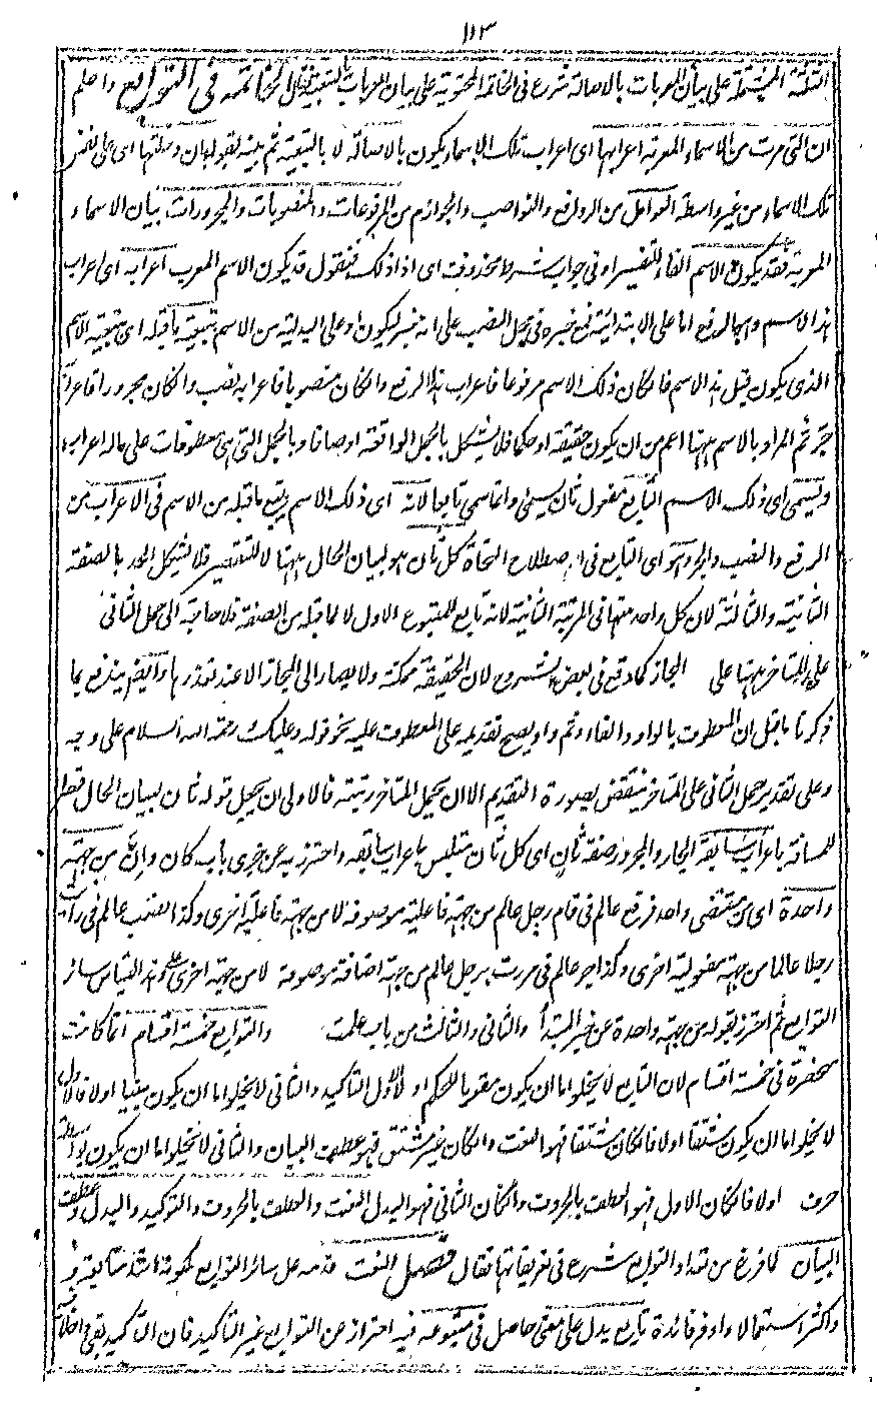 ١١٣
الثلثة المشتملة على بيان المعربات بالاصالة شرع فى الخاتمة المحتوية على بيان المعربات بالتبعية فقال الخاتمة فى التوابع واعلم
ان التى مرت من الاسماء المعربة اعرابها اى اعراب تلك الاسماء يكون بالاصالة لا بالتبعية ثم بينه بقوله بان دخلتها اى على نفس
تلك الاسماء من غير واسطة العوامل من الروافع والنواصب والجوازم من المرفوعات والمنصوبات والمجرورات بيان الاسماء
المعربة فقد يكون الاسم الفاء للتفسير او فى جواب شرط محذوف اى اذا ذلك فنقول قد يكون الاسم المعرب اعرابه اى اعراب
هذا الاسم وهو بالرفع اما على الابتدائية مع خبره فى محل النصب على انه خبر ليكون او على البدلية من الاسم بتبعية ما قبله اى بتبعية الاسم
الذى يكون قبل هذا الاسم فان كان ذلك الاسم مرفوعا فاعراب هذا الرفع وان كان منصوبا فاعرابه نصب وان كان مجرورا فاعرابه
جر ثم المراد بالاسم ههنا اعم من ان يكون حقيقة او حكما فلا يشكل بالجمل الواقعة اوصافا وبالجمل التى هى معطوفات على ماله اعراب
ويسمى اى ذلك الاسم التابع مفعول ثان ليسمى وانما سمى تابعا لانه اى ذلك الاسم يتبع ما قبله من الاسم فى الاعراب من
الرفع والنصب والجر وهو اى التابع فى اصطلاح النحاة كل ثان هو لبيان الحال ههنا لا للتفسير فلا يشكل الحد بالصفة
الثانية والثالثة لان كل واحد منها فى المرتبة الثانية لانه تابع للمتبوع الاول لا لما قبله من الصفة فلا حاجة الى حمل الثانى
على المتاخر ههنا على المجاز كما وقع فى بعض الشروح لان الحقيقة ممكنة ولا يصار الى المجاز الا عند تعذرها وايضا يندفع بما
ذكرنا ما قيل ان المعطوف بالواو والفاء وثم واو يصح تقديمه على المعطوف عليه نحو قوله وعليك ورحمة الله السلام على وجه
وعلى تقدير حمل الثانى على المتاخر ينتقض بصورة التقديم الا ان يحمل المتاخر رتبة فالاولى ان يحمل قوله ثان لبيان الحال قطعا
للمسافة باعراب سابقه الجار والمجرور صفة ثان اى كل ثان متلبس باعراب سابقه واحترز به عن خبرى باب كان وان من جهة
واحدة اى من مقتضى واحد فرفع عالم فى قام رجل عالم من جهة فاعلية موصوفه لا من جهة فاعلية اخرى وكذا نصب عالم فى رايت
رجلا عالما من جهة مفعولية اخرى وكذا جر عالم فى مررت برجل عالم من جهة اضافة موصوفه لا من جهة اخرى على هذا القياس سائر
التوابع ثم احترز بقوله من جهة واحدة عن خبر المبتدأ والثانى والثالث من باب علمت والتوابع خمسة اقسام انما كانت
منحصرة فى خمسة اقسام لان التابع لا يخلو اما ان يكون مقويا للحكم او لا الاول التاكيد والثانى لا يخلو اما ان يكون مبينا اولا فالاول
لا يخلو اما ان يكون مشتقا اولا فان كان مشتقا فهو النعت وان كان غير مشتق فهو عطف البيان والثانى لا يخلو اما ان يكون بواسطة
حرف اولا فان كان الاول فهو العطف بالحروف وان كان الثانى فهو البدل النعت والعطف بالحروف والتوكيد والبدل وعطف
البيان لما فرغ من تعداد التوابع شرع فى تعريفاتها فقال فصل النعت قدمه على سائر التوابع لكونه اشد متابعة
واكثر استعمالا واوفر فائدة تابع يدل على معنى حاصل فى متبوعه فيه احتراز عن التوابع غير التاكيد فان التاكيد بقى داخلا